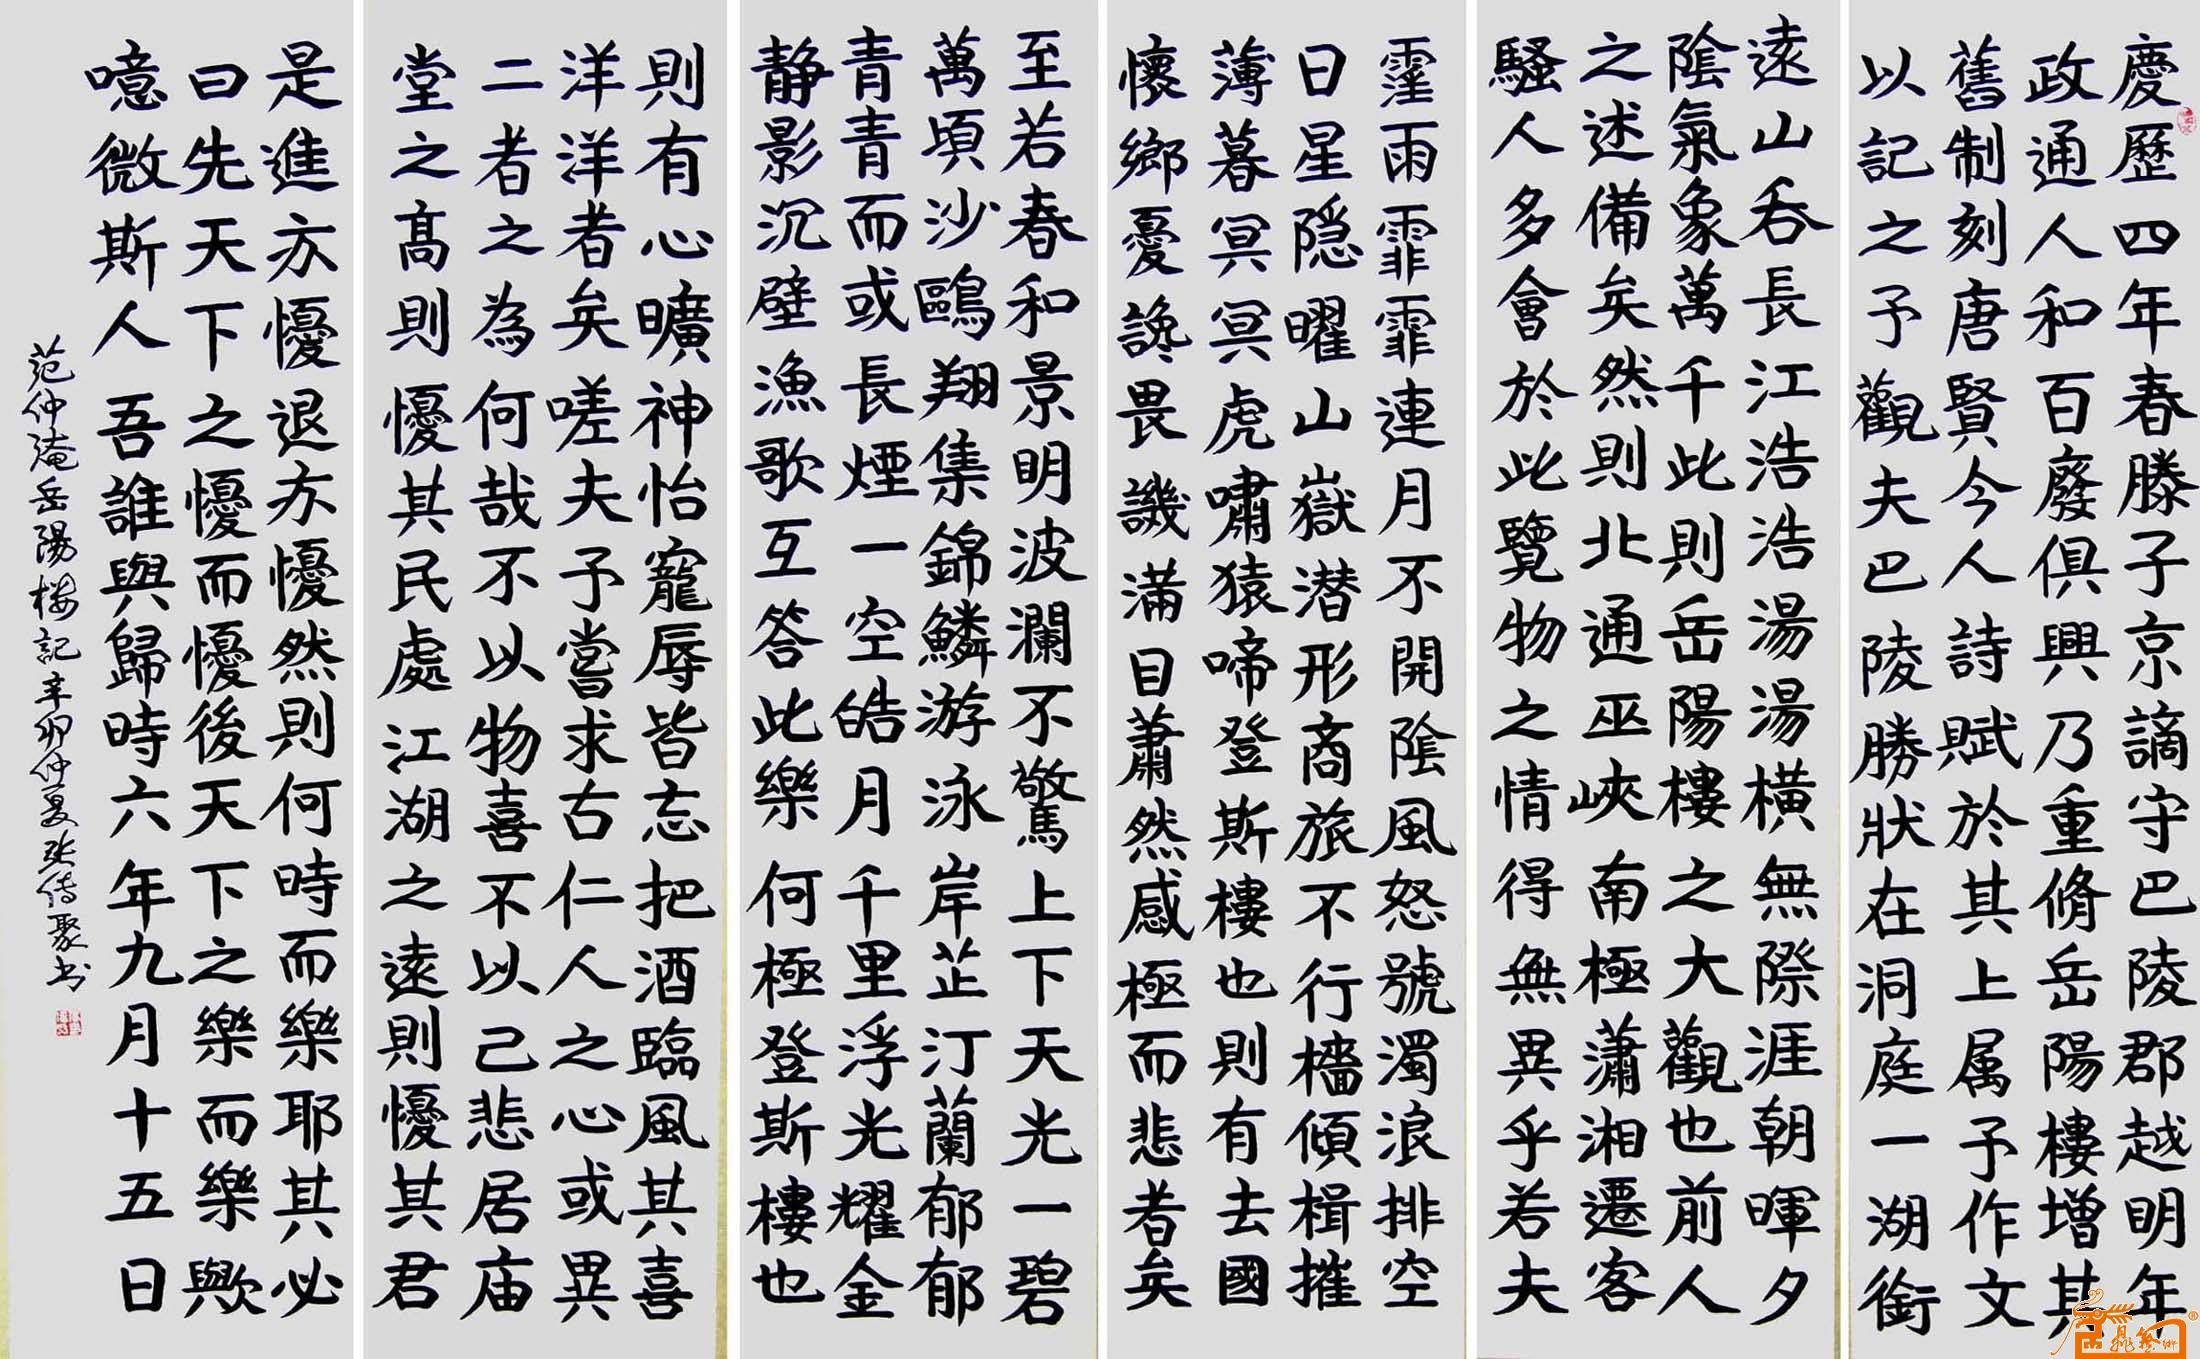 慶歷四年春滕子京謫守巴陵郡越明年
政通人和百廢俱興乃重脩岳陽樓增其
舊制刻唐賢今人詩賦於其上属予作文
以記之予觀夫巴陵勝狀在洞庭一湖銜
遠山吞長江浩浩湯湯橫無際涯朝暉夕
陰氣象萬千此則岳陽樓之大觀也前人
之述備矣然則北通巫峽南極瀟湘遷客
騷人多會於此覽物之情得無異乎若夫
霪雨霏霏連月不開陰風怒號濁浪排空
日星隐曜山嶽潜形商旅不行檣傾楫摧
薄暮冥冥虎嘯猿啼登斯樓也則有去國
懷鄉憂讒畏譏滿目蕭然感極而悲者矣
至若春和景明波瀾不驚上下天光一碧
萬頃沙鷗翔集錦鱗游泳岸芷汀蘭郁郁
青青而或長煙一空皓月千里浮光耀金
静影沉壁漁歌互答此樂何極登斯樓也
則有心曠神怡寵辱皆忘把酒臨風其喜
洋洋者矣嗟夫予嘗求古仁人之心或異
二者之為何哉不以物喜不以己悲居庙
堂之髙則懮其民處江湖之遠則懮其君
是進亦懮退亦懮然則何時而樂耶其必
曰先天下之懮而懮後天下之樂而樂歟
噫微斯人吾誰與歸時六年九月十五日
范仲淹岳陽楼記辛卯仲夏张傳聚书